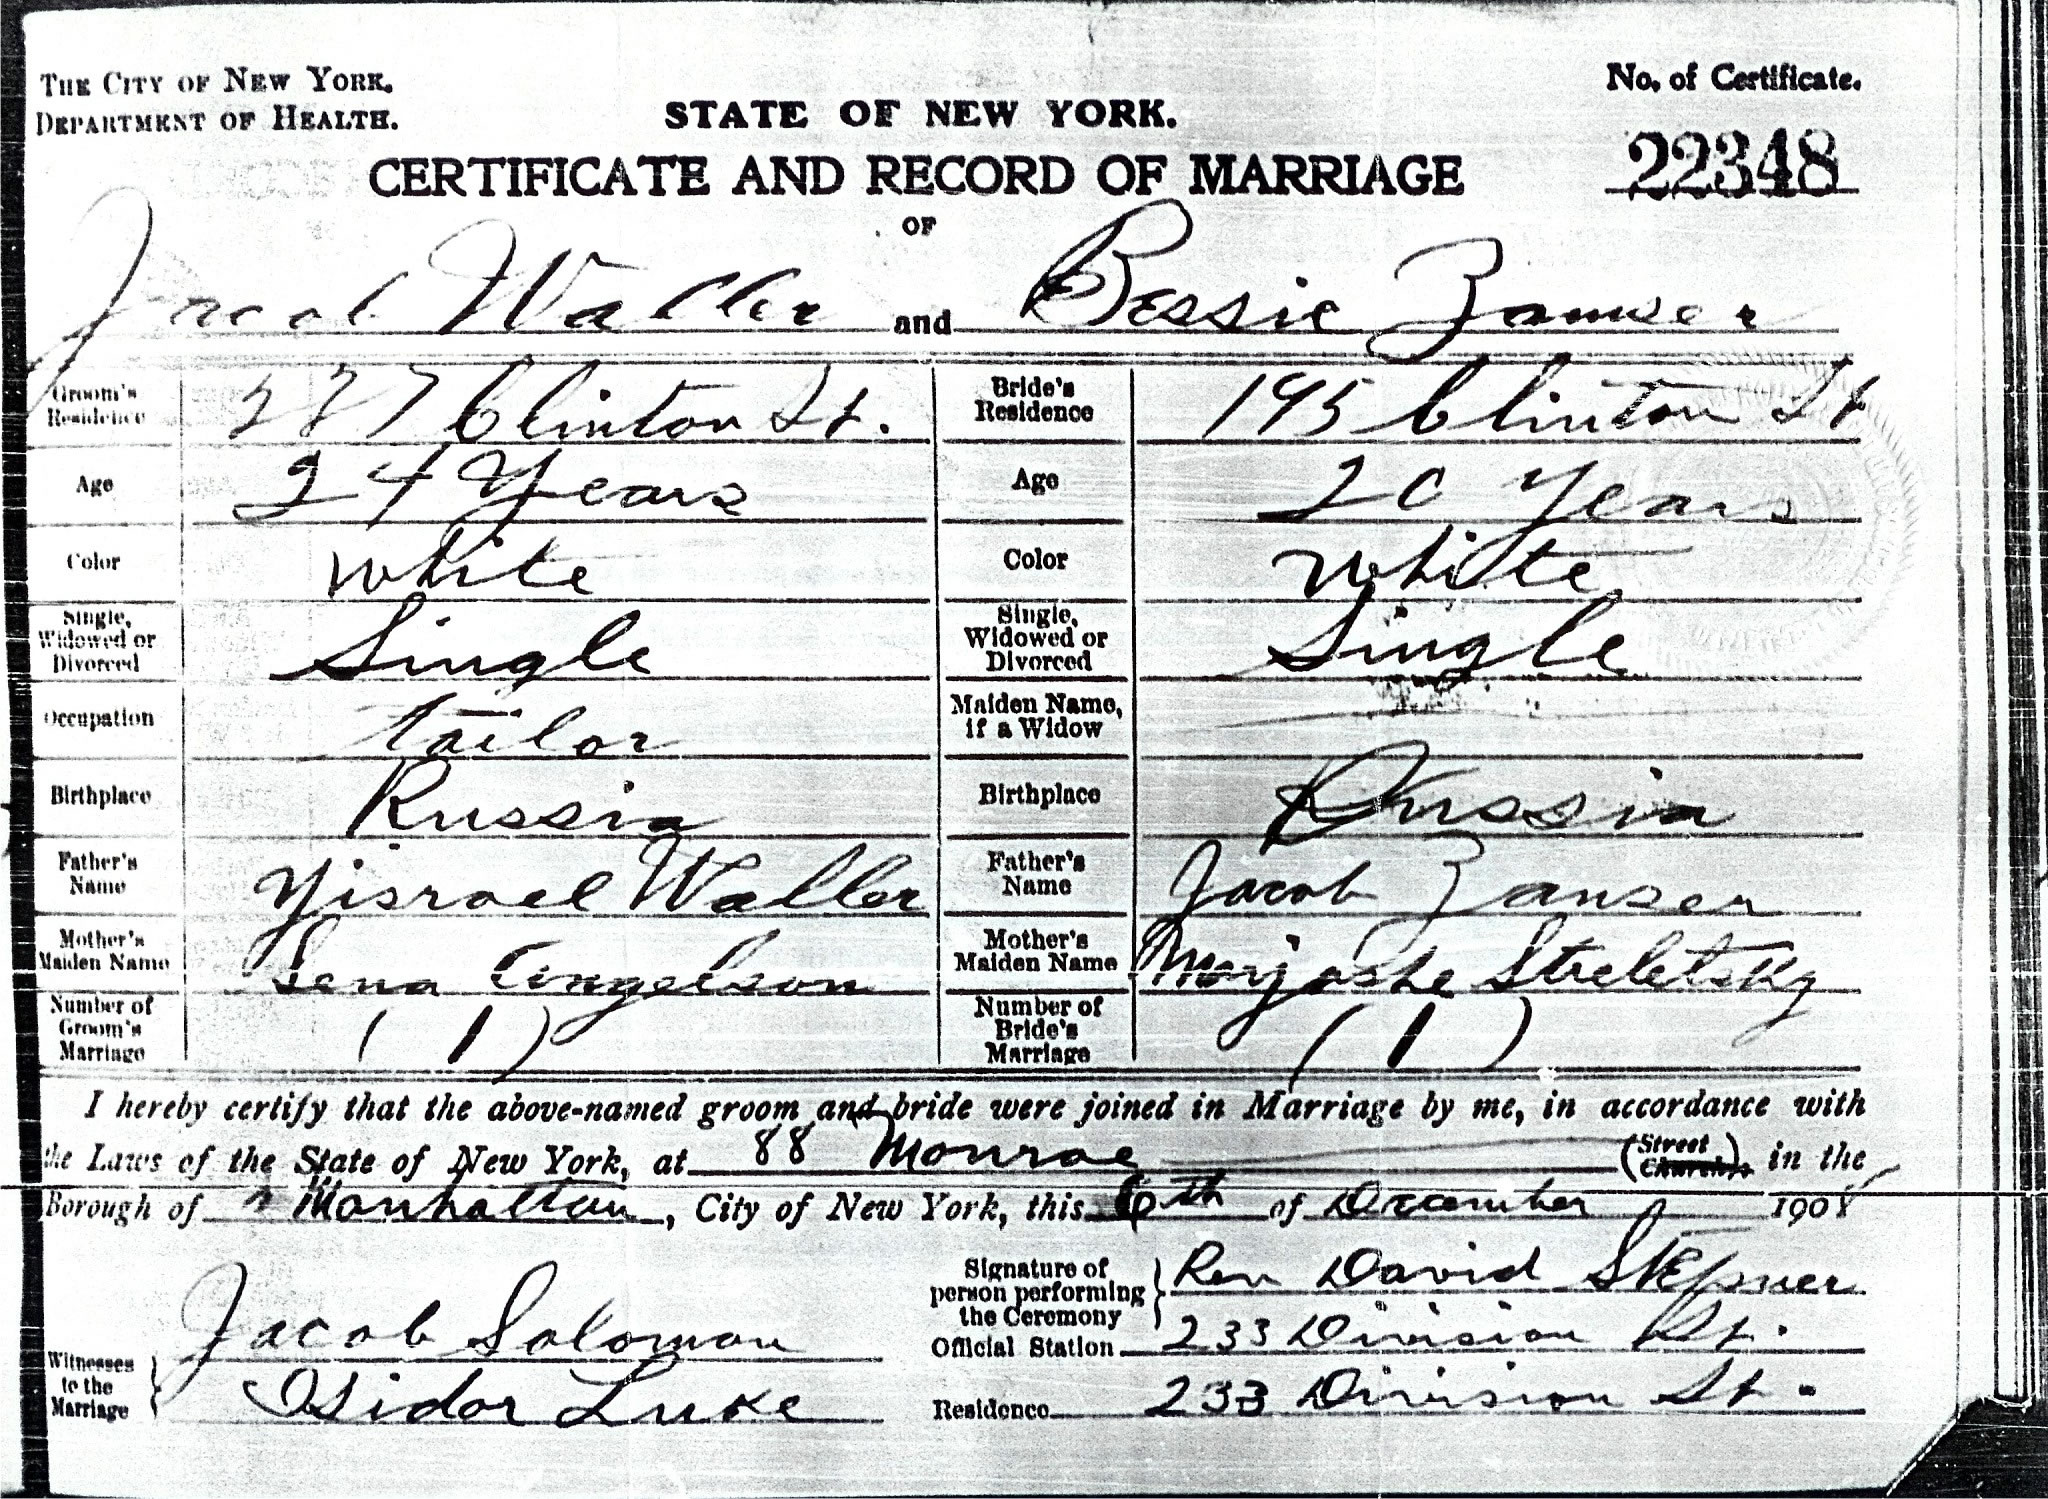 THE CITY OF NEW YORK.
DEPARTMENT OF HEALTH.
No. of Certificate.
22348
STATE OF NEW YORK.
CERTIFICATE AND RECORD OF MARRIAGE
OF
Jacob Waller and Bessie Zamser
Groom's Residence 287 Clinton St. Bride's Residence 195 Clinton St
Age 24 Years Age 20 Years
Color White Color White
Single, Widowed or Divorced Single Single, Widowed or Divorced Single
Occupation tailor Maiden Name, if a Widow
Birthplace Russia Birthplace Russia
Father's Name Yisroel Waller Father's Name Jacob Zanser
Mother's Maiden Name Lena Angelson Mother's Maiden Name Marjashe Streletsky
Number of Groom's Marriage (1) Number of Bride's Marriage (1)
I hereby certify that the above-named groom and bride were joined in Marriage by me, in accordance with
the Laws of the State of New York, at 88 Monroe (Street Church), in the
Borough of Manhattan, City of New York, this 6th of December 1908
Signature of person performing the Ceremony Rev David
Official Station 233 Division St.
Residence 233 Division St.
Witnesses to the Marriage Jacob Solomon
Isidor Luke